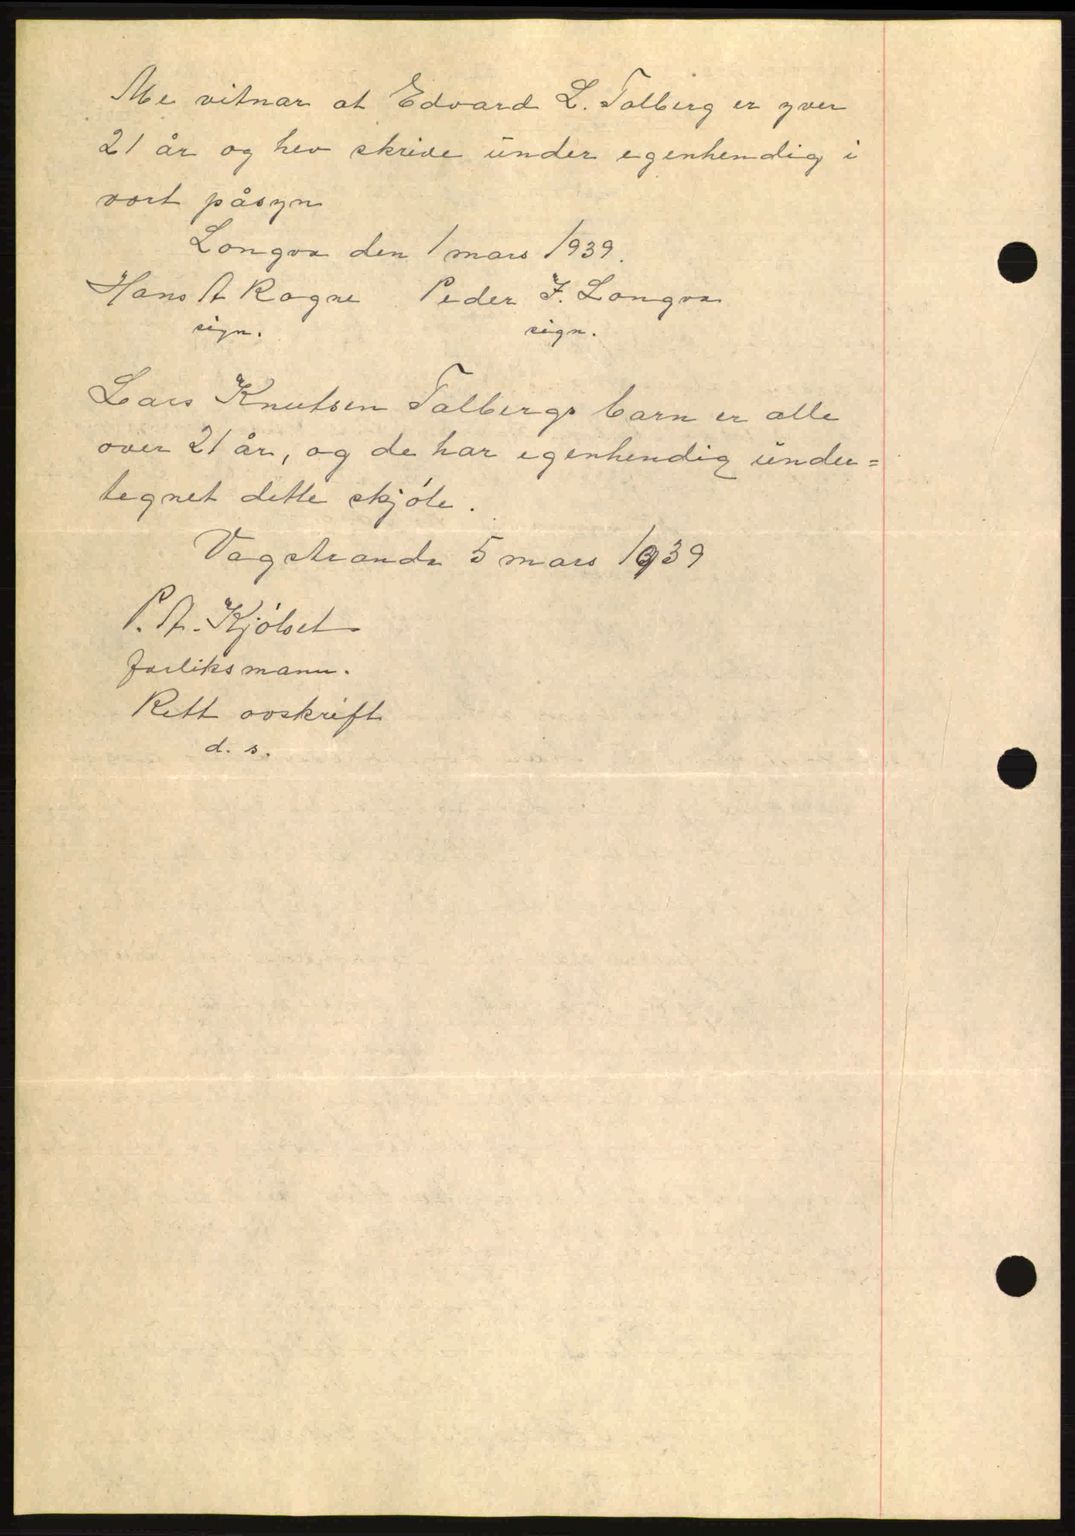 Me vitnar at Edvard L. Talberg er yver
21 år og hev skrive under egenhendig i
vort påsyn
Longva den 1 mars 1939.
Hans A Rogne Peder J. Longva
sign. sign.
Lars Knutsen Talbergs barn er alle
over 21 år, og de har egenhendig under=
tegnet dette skjøte.
Vagstranda 5 mars 1939
P. A. Kjølset
forliksmann.
Rett avskrift
d. s.